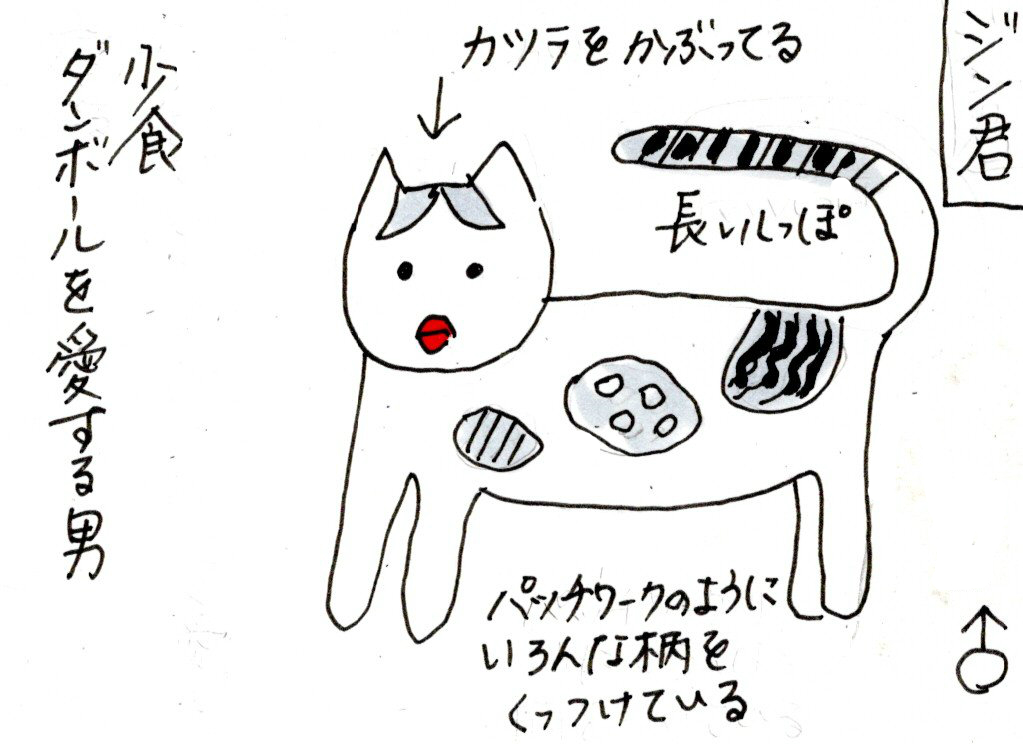 ジン君
カツラをかぶってる
長いしっぽ
少食
ダンボールを愛する男
パッチワークのように
いろんな柄を
くっつけている
♂